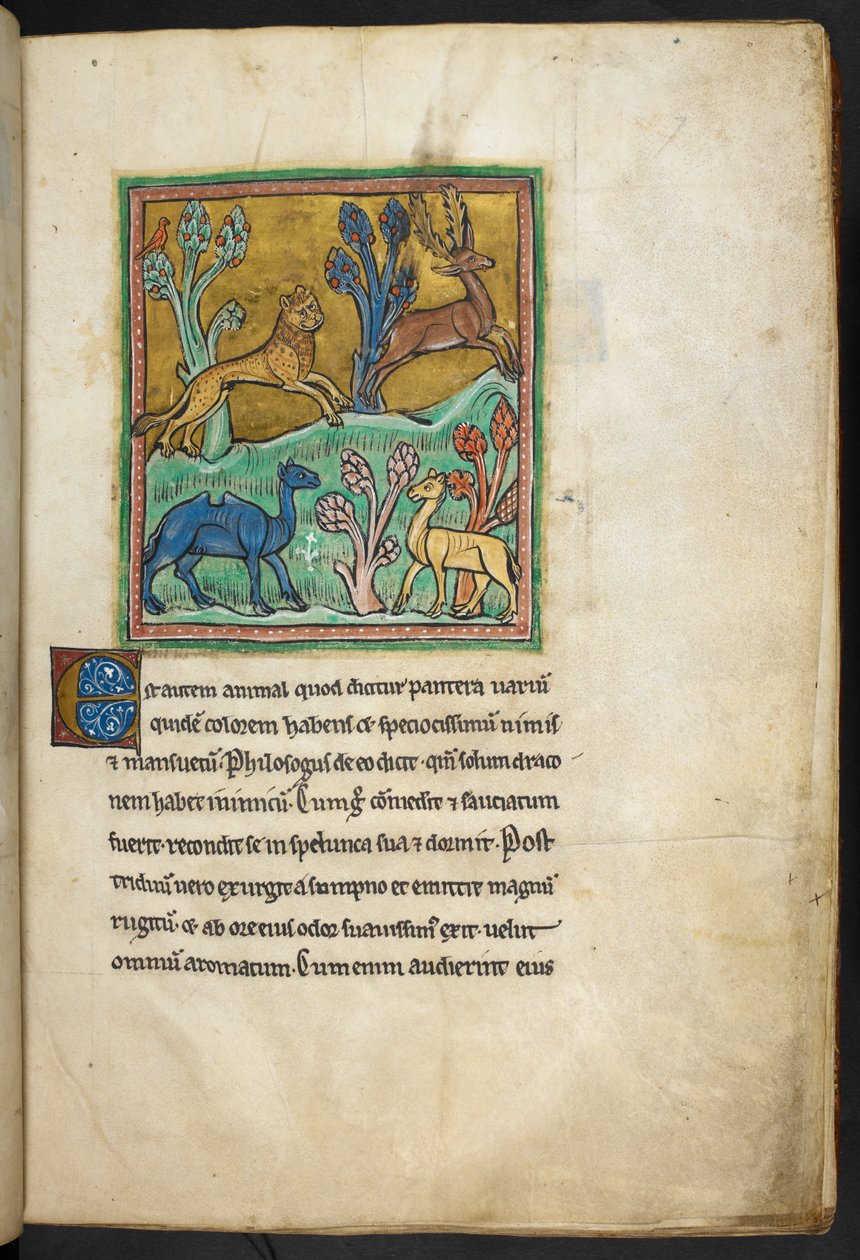 Est autem animal quod dicitur pantera uariū
quidē colorem habens & speciocissimū nimis
⁊ mansuetū. Philosogus de eo dicit. qm̄ solum draco
nem habet inimicū. Cum gͦ cōmedit ⁊ sauciatum
fuerit. recondit se in spelunca sua ⁊ dormit. Post
triduū uero exurgit a sompno et emittit magnū
rugitū. & ab ore eius odor suauissim᷒ exit. uelut
omniū aromatum. Cum enim audierint eius